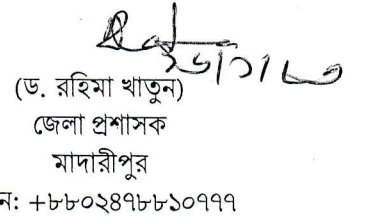 (ড. রহিমা খাতুন)
জেলা প্রশাসক
মাদারীপুর
ন: +৮৮০২৪৭৮৮১০৭৭৭